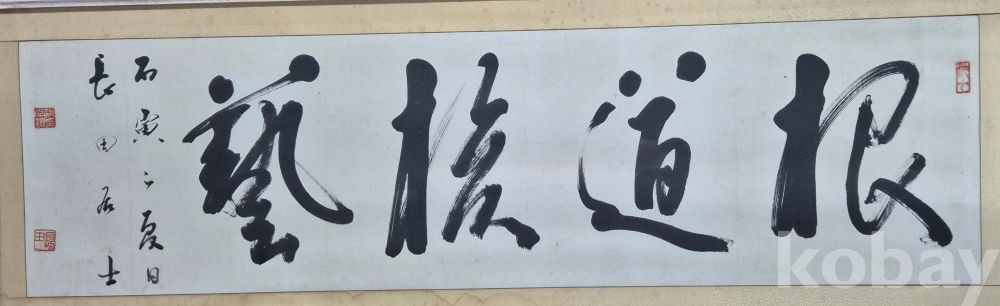 根道核藝
丙寅之夏日
長田居士
kobay